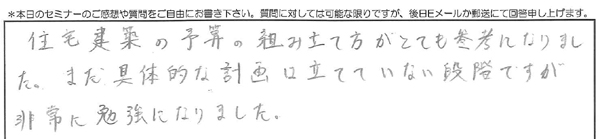 *本日のセミナーのご感想や質問をご自由にお書き下さい。質問に対しては可能な限りですが、後日Eメールか郵送にて回答申し上げます。
住宅建築の予算の組み立て方がとても参考になりまし
た。まだ具体的な計画は立てていない段階ですが
非常に勉強になりました。